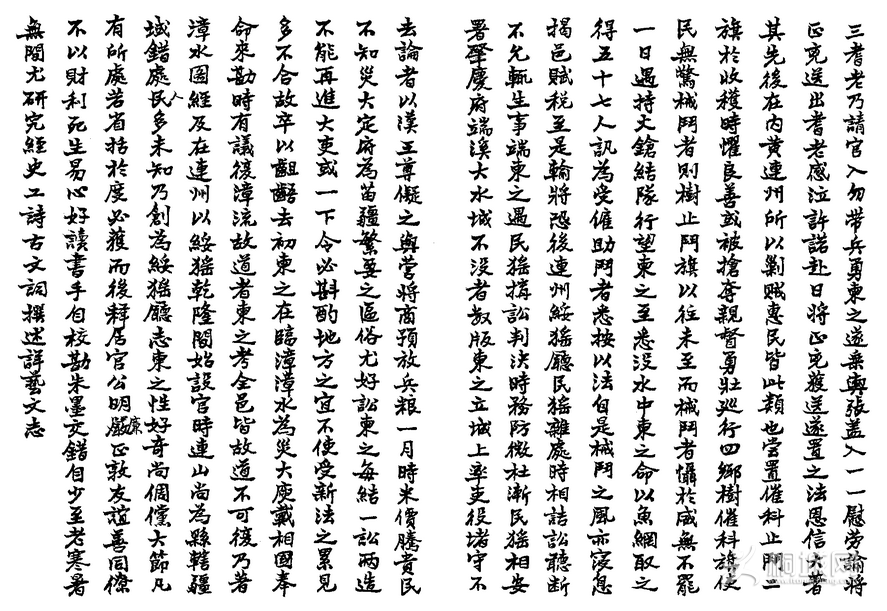 三耆老乃請官入勿帶兵勇東之遂乘輿張蓋入一一慰勞諭將
正兇送出耆老感泣許諾赴日將正兇獲送遂置之法恩信大著
其先後在內黄連州所以剿賊惠民皆此類也嘗置催科止鬥二
旗於收穫時懼良善或被搶奪親督勇壯巡行四鄉樹催科旗使
民無驚械鬥者則樹止鬥旗以往未至而械鬥者懾於威無不罷
一日遇持火鎗結隊行望東之至悉没水中東之命以魚網取之
得五十七人訊為受僱助鬥者悉按以法自是械鬥之風亦寖息
揭邑賦税至是輸將恐後連州綏猺廳民猺雜處時相詰訟聽斷
不允輒生事端東之遇民猺搆訟判决時務防微杜漸民猺相安
署肇慶府端溪大水城不没者数版東之立城上率吏役堵守不
去論者以漢王尊儗之與營將商預放兵粮一月時米價騰貴民
不知災大定府為苗疆繁要之區俗尤好訟東之每結一訟兩造
不能再進大吏或一下令必斟酌地方之宜不使受新法之累見
多不合故卒以齟齬去初東之在臨漳漳水為災大庾戴相國奉
命來勘時有議復漳流故道者東之考全邑皆故道不可復乃著
漳水圖經及在連州以綏猺乾隆間始設官時連山尚為縣轄疆
域錯處民人多未知乃創為綏猺廳志東之性好奇尚倜儻大節凡
有所處若省括於度必獲而後釋居官公明廉嚴正敦友誼善同僚
不以財利死生易心好讀書手自校勘朱墨交錯自少至老寒暑
無間尤研究經史工詩古文詞撰述詳藝文志